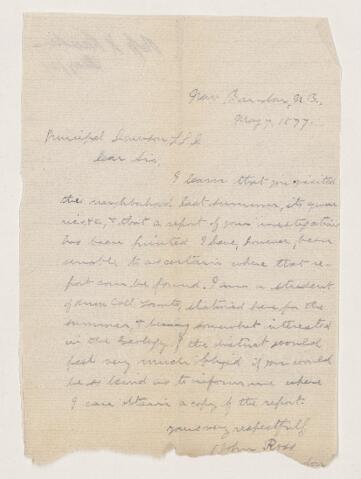 New Bandon, N.B.,
May 7, 1877.
Principal Dawson LL.D
Dear Sir,
I learn that you visited
the neighborhood last summer, its quar
ries &c, & that a report of your investigation
has been printed I have, however, been
unable to ascertain where that re-
port can be found. I am a student
of Coll stationed here for the
summer, & being somewhat interested
in the Geology of the district would
feel very much obliged if you would
be so kind as to inform me where
I can obtain a copy of the report.
Yours very respectfully
John Ross